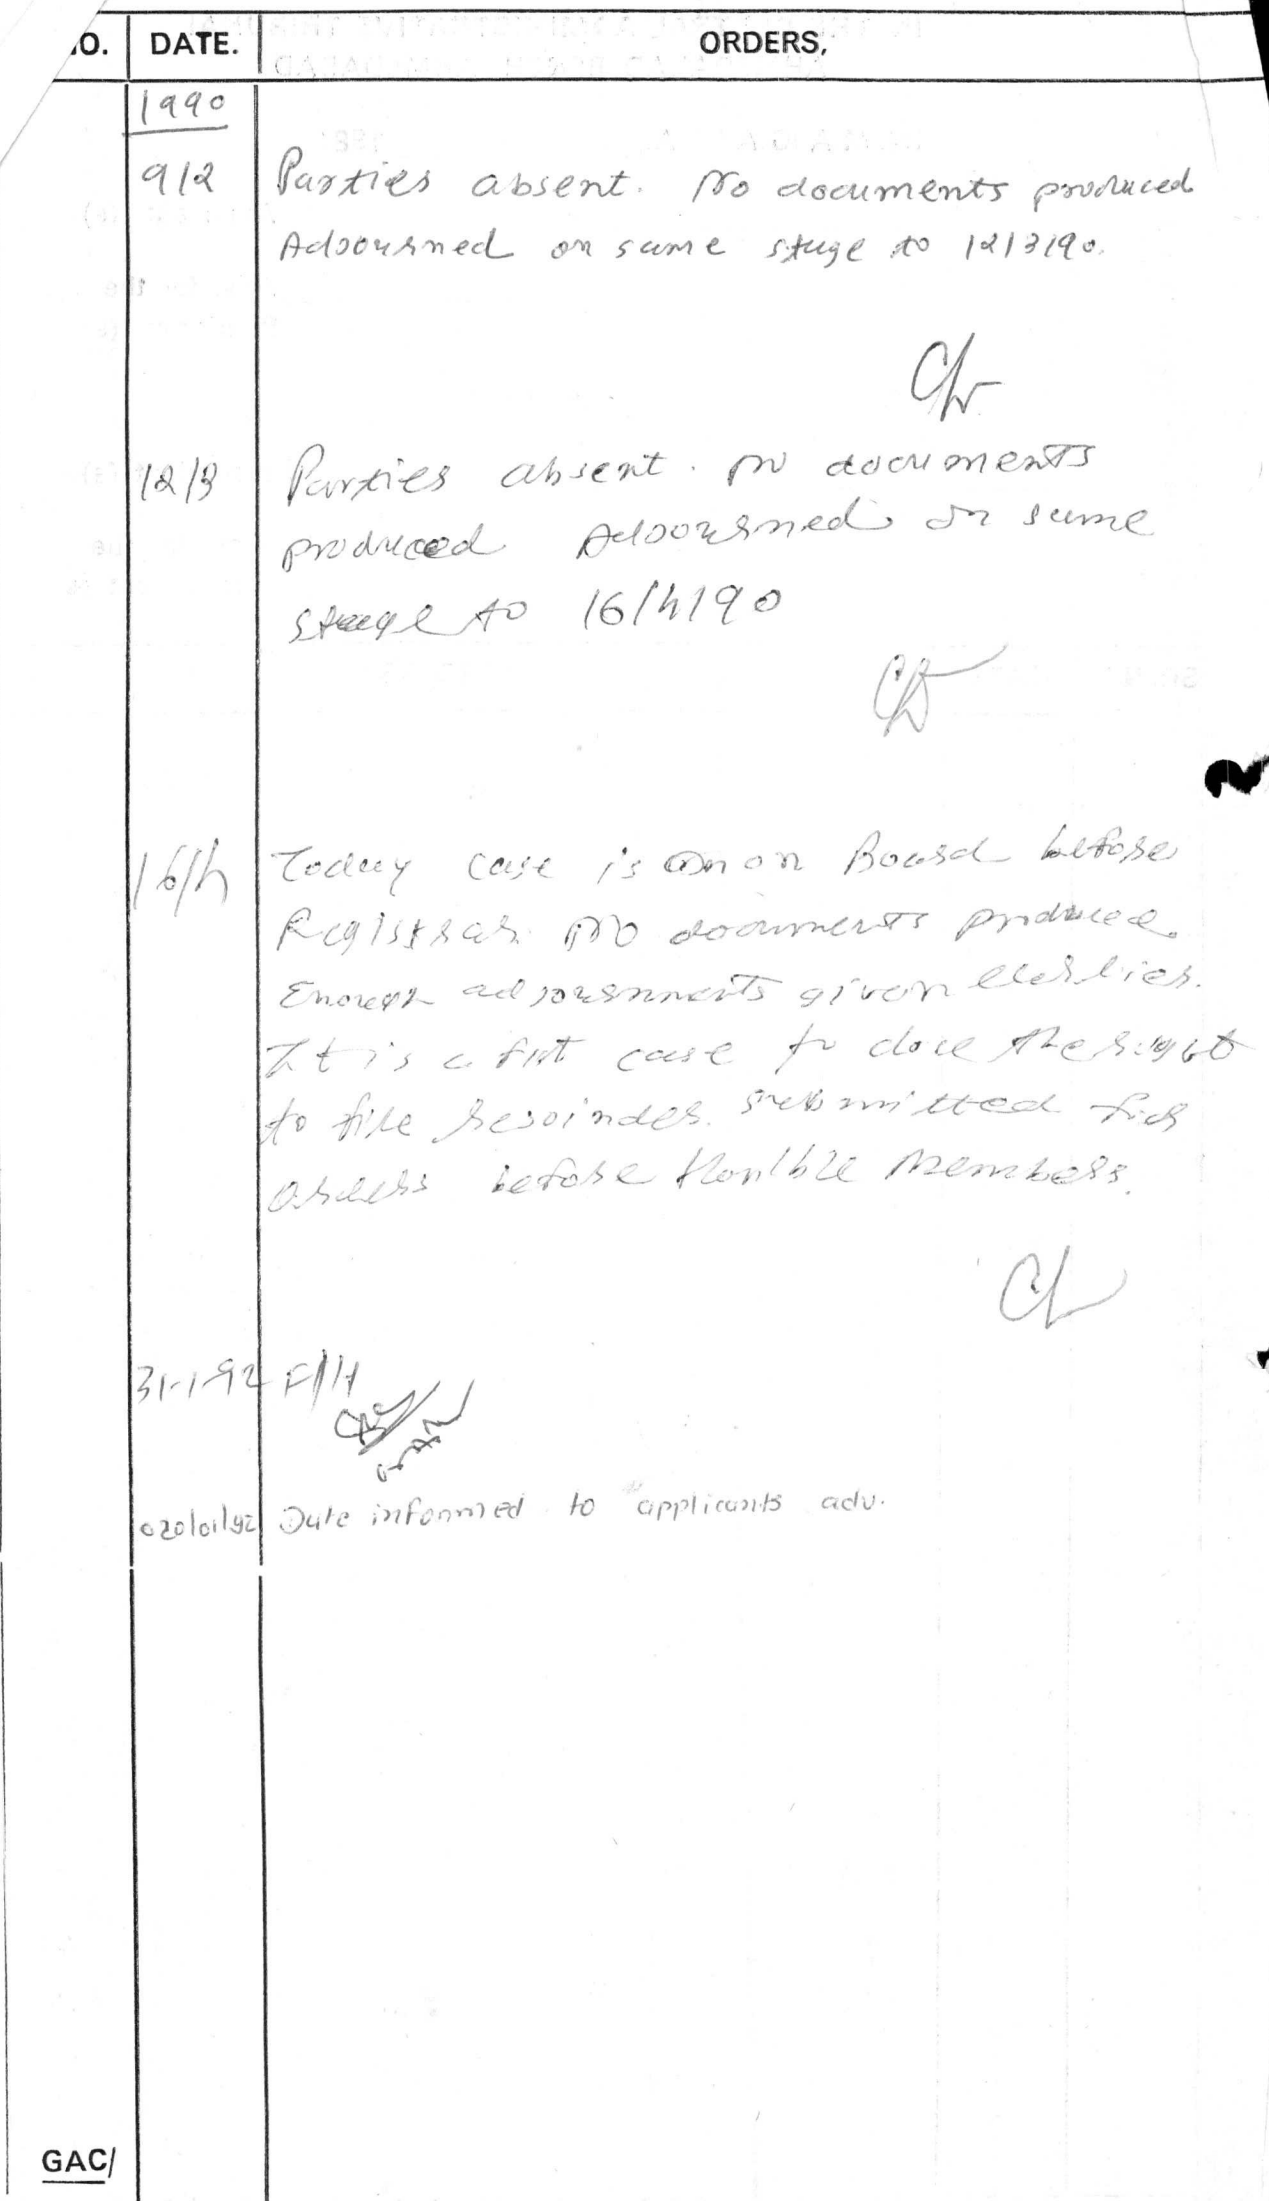 O. DATE. ORDERS,
1990
9/2 Parties absent. No documents produced
Adjourned on same stage to 12/3/90.
12/3 Parties absent. No documents
produced Adjourned on same
stage to 16/4/90
16/4 Today case is on on Board before
Registrar. No documents produced.
Enough adjournments given earlier.
It is a fit case to close the right
to file rejoinder. submitted for
orders before Hon'ble Members.
31-1-92 F/H
Date informed to applicants adv.
GAC/